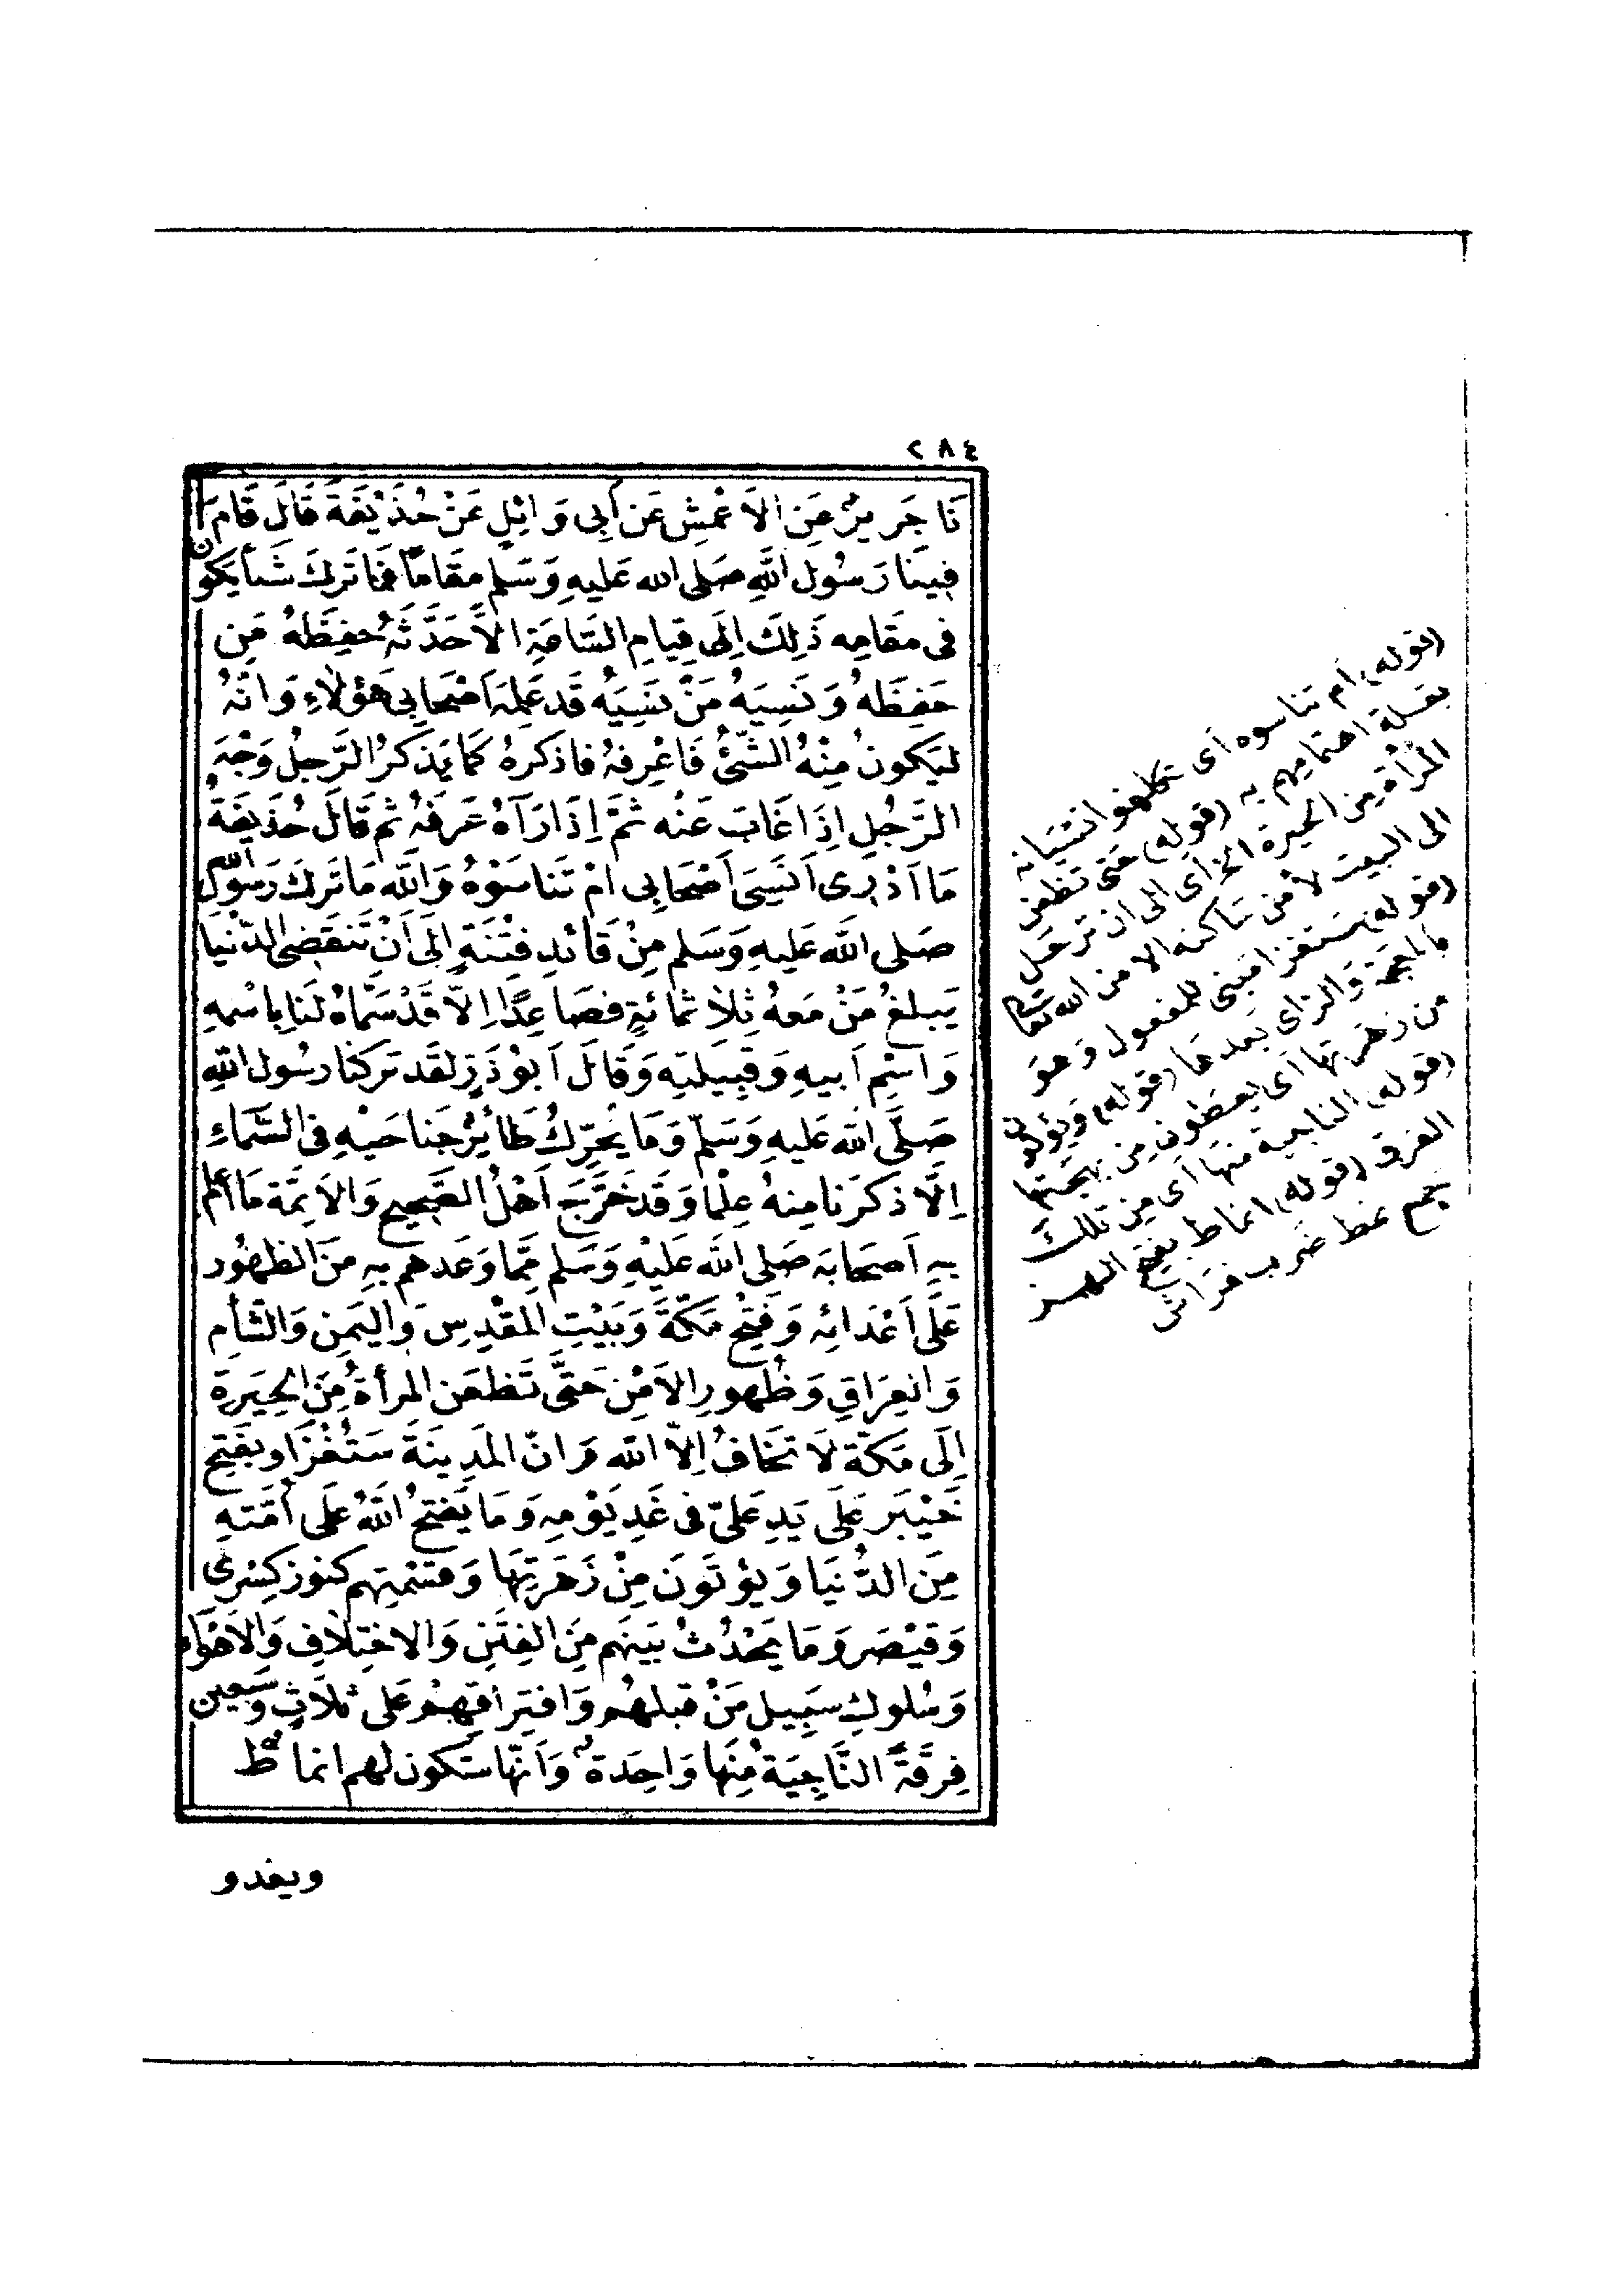 ٢٨٤
نَا جَرِيرٌ عَنِ الاَعْمَشِ عَن أَبِى وَائِلٍ عَنْ حُذَيْفَةَ قَالَ قَامَ
فِينَا رَسُولُ اللَّهِ صَلى الله عَليهِ وَسَلم مقَاماً فمَا تَركَ شَيأ يَكون
فى مقَامِه ذَلِكَ اِلَى قِيامِ السَّاعَةِ الاَّ حَدَّثَهُ حَفِظَهُ مَن
حَفِظَهُ وَنَسِيَهُ مَنْ نَسِيَهُ قَد عَلِمَهُ اَصْحَابِى هَؤلاءِ وَانَّهُ
ليَكونُ مِنْهُ الشَّئُ فَاعْرِفهُ فاذكرهُ كَمَا يَذكرُ الرَّجلُ وَجْهَ
الرَّجُلِ اِذَا غَابَ عَنْه ثمَّ اِذَا رَآهُ عَرفَهُ ثم قَالَ حُذَيفَةُ
مَا اَدْرِى اَنَسِىَ اَصْحَابى امْ تَنَاسَوْهُ وَاللَّه مَا تَركَ رَسُولُ الله
صَلى اللَّه عَليهِ وَسَلم مِنْ قَائدِ فِتْنَةٍ اِلَى اَنْ تَنقَضِى الدّنْيَا
يَبلغُ مَنْ مَعهُ ثلاَثمائةٍ فصَاعِدًا اِلاّ قَدْ سَمَّاهُ لنَا بِاسْمهِ
وَاسْمِ اَبيهِ وَقَبِيلتِه وَقَالَ اَبوْ ذَرٍّ لقَد تَركنَا رسُول اللّهِ
صَلَّى اللّه عَليهِ وَسَلّم وَمَا يُحَرِّكُ طَائرٌ جَنَاحَيْهِ فى السَّمَاءِ
اِلَّا ذكَرَنَا مِنهُ عِلْمًا وَقَد خَرَّجَ اَهْلُ الصَّحِيحِ وَالاَئِمَّة مَا اَعْلم
بهِ اَصحَابَهُ صَلى اللّه عَليْهِ وَسَلم مِمَّا وَعَدهم بهِ مِنَ الظهُور
عَلَى اَعْدَائِه وَفَتْحِ مَكّةَ وَبَيْتِ المَقْدِسِ وَاليَمنِ وَالشّأم
وَالعِرَاقِ وَظُهورِ الاَمْنِ حَتَّى تَظعَن المرأةُ مِنَ الحِيَرةِ
اِلَى مَكّة لاَ تخَافُ اِلاّ الله وَانّ المَدِينَةَ سَتُغْزَا ويفتح
خَيْبَر عَلَى يَدِ عَلىّ فى غَدِ يَوْمِه وَمَا يَفتحُ اللَّهُ عَلى اُمّتهِ
مِنَ الدُّنيَا وَيؤتَونَ مِنْ زَهَرتِهَا وَقسْمتِهم كنوز كِسْرى
وَقيْصَر وَمَا يَحْدُثُ بَينَهم مِنَ الفِتَنِ وَالاختِلاَفِ وَالاَهْوَاء
وَسُلوكِ سَبِيلِ مَنْ قبلهُم وَافتِرَاقِهمْ عَلى ثلاَثٍ وَسَبعِين
فِرقَةً النَّاجِيَة مِنهَا وَاحِدَةٌ وَاَنّهَا سَتكون لهم انماطٌ
ويغدو
(قوله) أم تناسوه أى تكلفوا نسيانه
بقلة اهتمامهم به (قوله) حتى تظعن
المرأة من الحيرة الخ أى الى ان ترحل
الى البيت لأمن ساكنه الا من الله تعالى
(قوله) ستغزا مبنى للمفعول وهو
بالمعجمة والزاى بعدها (قوله) ويؤتون
من زهرتها أى يعطون من بهجتها
(قوله) الناجية منها أى من تلك
الفرق (قوله) انماط بفتح الهمز
جمع نمط ضرب فراش